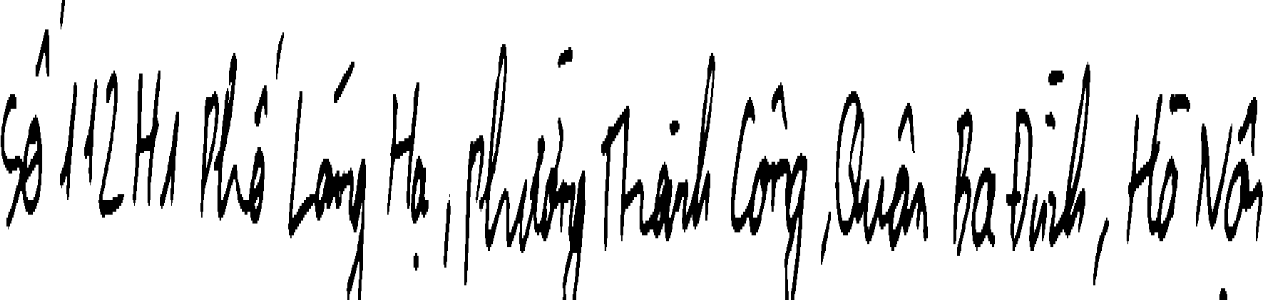 Số 112 H1 Phố Láng Hạ, phường Thành Công, Quận Ba Đình, Hà Nội